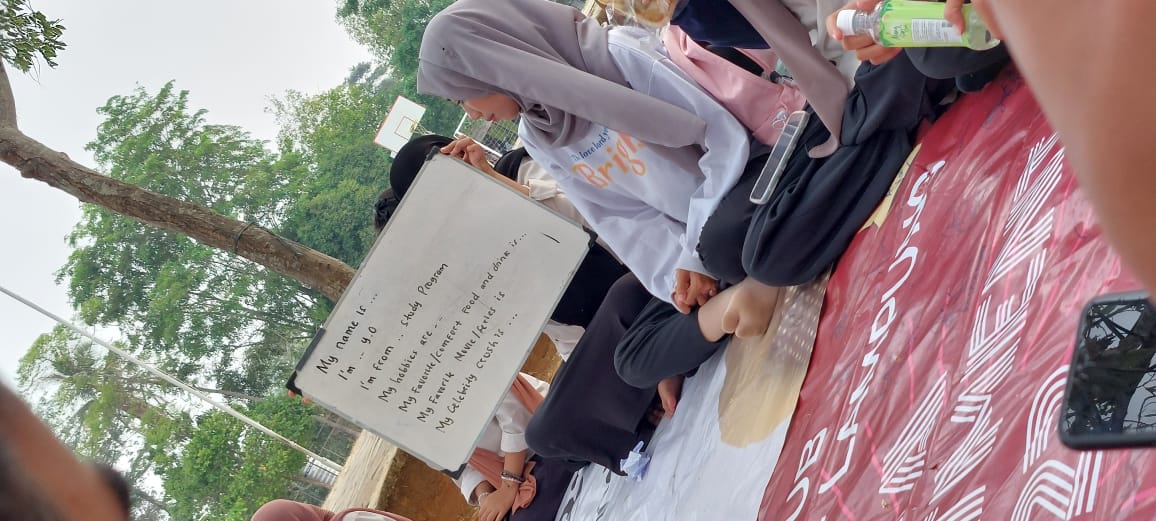 My name is ...
I'm ... y.o
I'm from ... study Program
My hobbies are ...
My Favorite/comfort Food and drink is ...
My Favorite Movie/Series is
My Celebrity Crush is ...
Brigh
LAMPUNG
UB